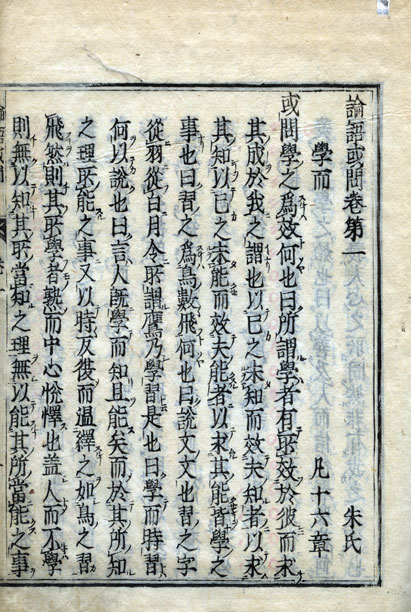 論語或問卷第一　朱氏
學而　凡十六章
或問學之為效何也曰所謂學者有所效於彼而求
其成於我之謂也以己之未知而效夫知者以求
其知以己之未能而效夫能者以求其能皆學之
事也曰習之為鳥數飛何也曰說文文也習之字
從羽從白月令所謂鷹乃學習是也曰學而時習
何以說也曰言人既學而知且能矣而於其所知
之理所能之事又以時反復而溫繹之如鳥之習
飛然則其所學者熟而中心悅懌也蓋人而不學
則無以知其所當知之理無以能其所當能之事